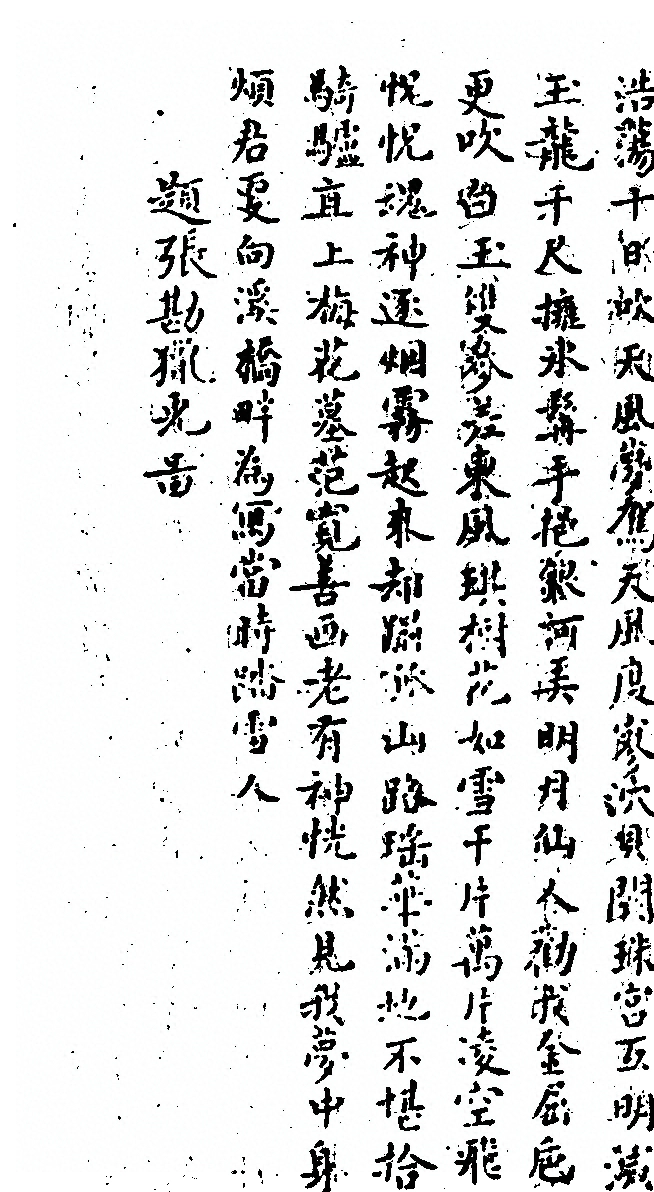 浩蕩十日天風夢駕天風度寥泬貝闕珠宮互明滅
玉龍千尺擁氷髯手挹銀河弄明月仙人勸我金屈卮
更吹白玉雙參差東風琪樹花如雪千片萬片凌空飛
怳怳魂神逐烟霧起來却躡孤山路瑤華滿地不堪拾
騎驢直上梅花墓范寬善画老有神恍然見我夢中身
煩君更向溪橋畔為寫當時踏雪人
題張勘獵児啚